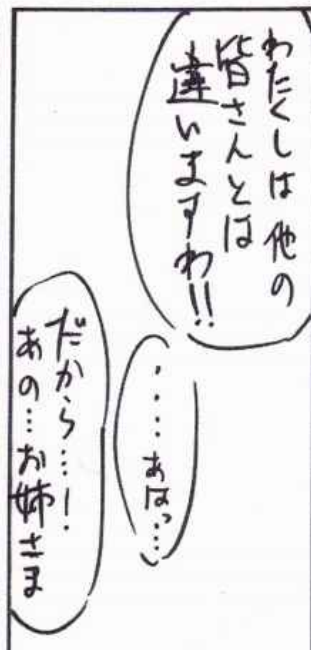 わたくしは他の
皆さんとは
違いますわ!!
‥‥あはっ…
だから…!
あの…お姉さま